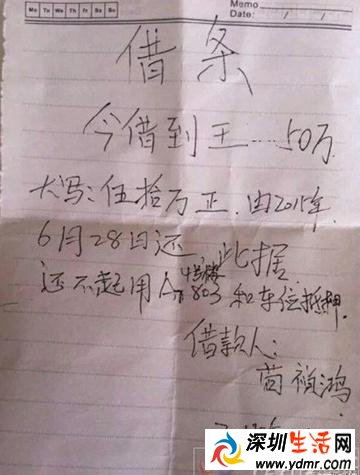 Memo
Mo Tu We Th Fr Sa Su Date: / /
借条
今借到王 50万
大写:伍拾万正.由2015年
6月28日还 此据
还不起用 803和车位抵押.
借款人:
深圳生活网
www.ydmr.com